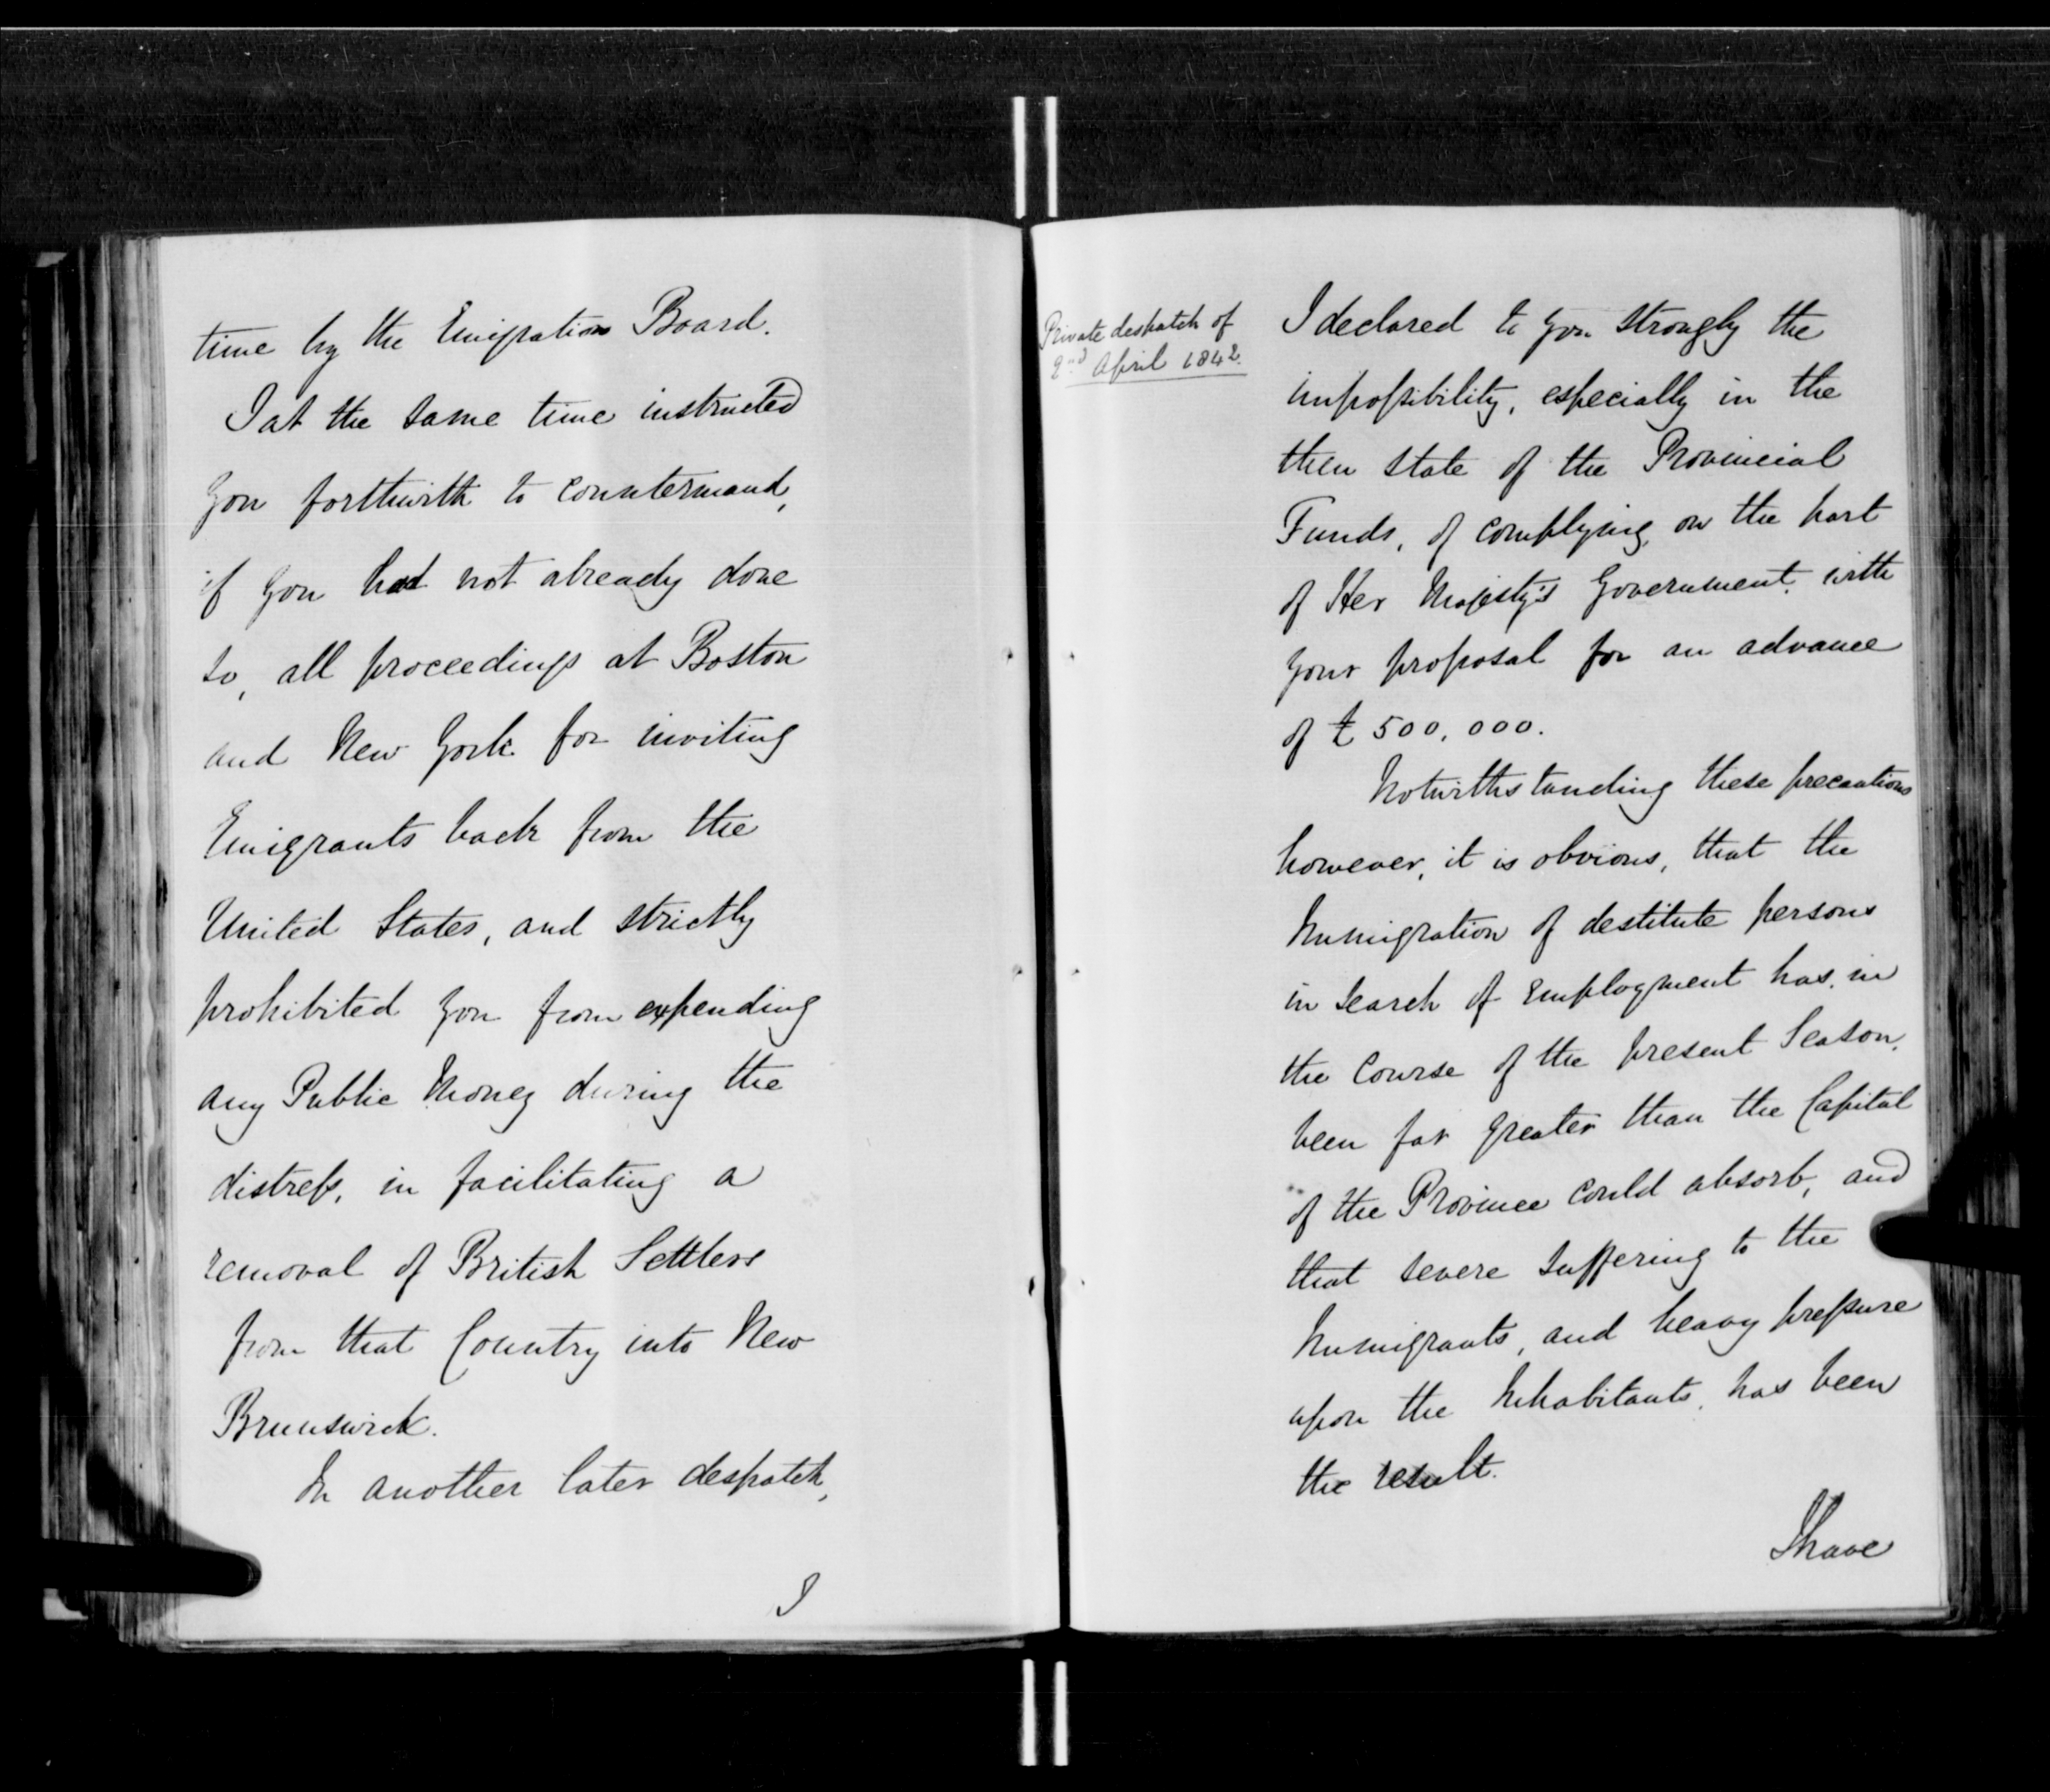 time by the Emigration Board.
I at the same time instructed
you forthwith to countermand,
if you had not already done
so, all proceedings at Boston
and New York for inviting
Emigrants back from the
United States, and strictly
prohibited you from expending
any Public Money during the
distress, in facilitating a
removal of British Settlers
from that Country into New
Brunswick.
In another later despatch,
I
Private despatch of
2nd April 1842.
I declared to you strongly the
impossibility, especially in the
then state of the Provincial
Funds, of complying, on the part
of Her Majesty's Government, with
your proposal for an advance
of £500,000.
Notwithstanding these precautions
however, it is obvious, that the
Immigration of destitute persons
in search of employment has, in
the course of the present Season,
been far greater than the Capital
of the Province could absorb, and
that severe suffering to the
Immigrants, and heavy pressure
upon the Inhabitants, has been
the result.
I have